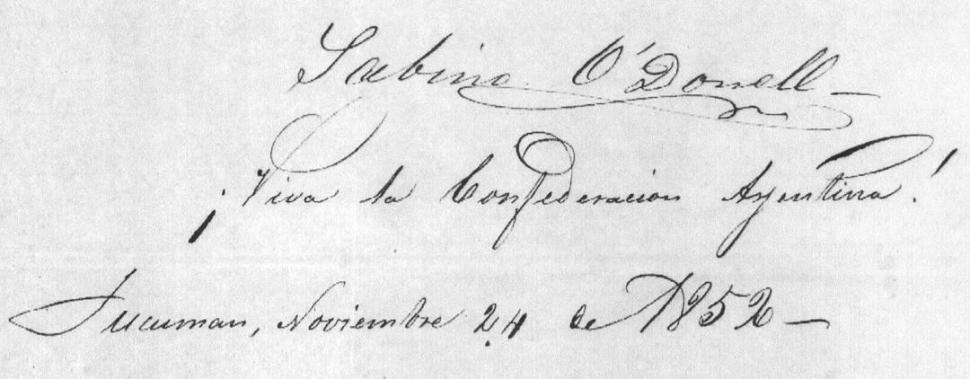 Sabino O'Donell —
¡Viva la Confederacion Argentina!
Tucuman, Noviembre 24 de 1852 —